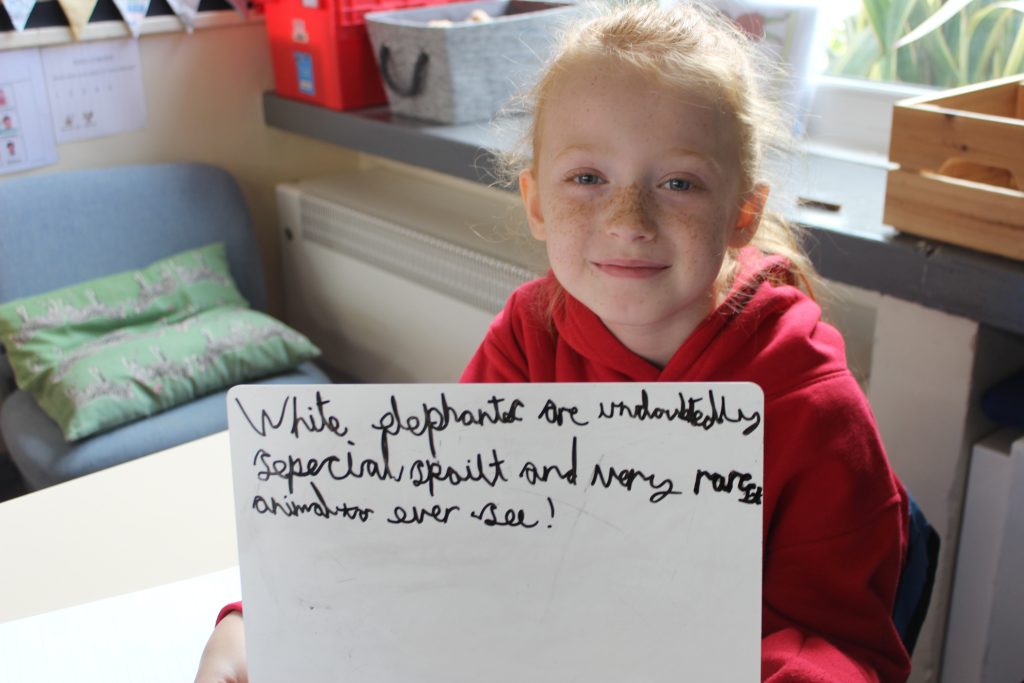 White elephants are undoubtedly
sepecial spoilt and very rarest
animal to ever see!